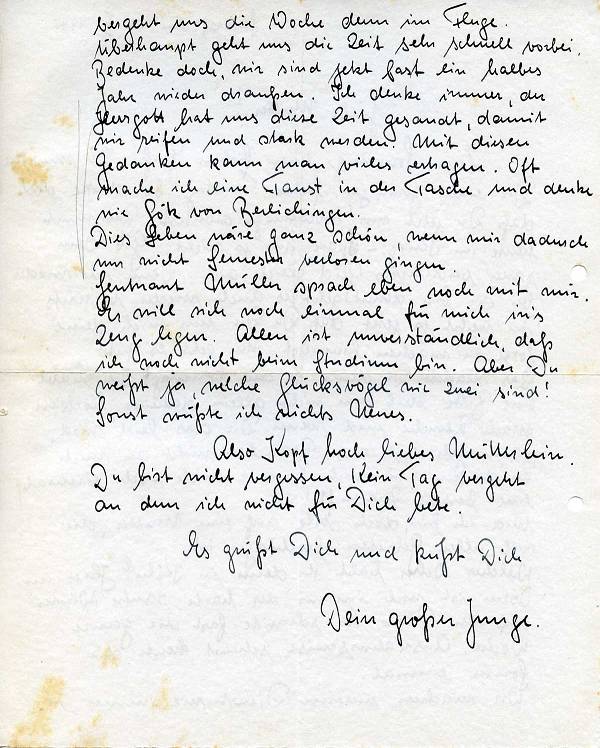 vergeht uns die Woche denn im Fluge.
Überhaupt geht uns die Zeit sehr schnell vorbei.
Bedenke doch, wir sind jetzt fast ein halbes
Jahr wieder draußen. Ich denke immer, der
Herrgott hat uns diese Zeit gesandt, damit
wir reifen und stark werden. Mit diesen
Gedanken kann man vieles ertragen. Oft
mache ich eine Faust in der Tasche und denke
wie Götz von Berlichingen.
Dies Leben wäre ganz schön, wenn mir dadurch
nur nicht Semester verloren gingen.
Leutnant Müller sprach eben noch mit mir.
Er will sich noch einmal für mich ins
Zeug legen. Allen ist unverständlich, daß
ich noch nicht beim Studium bin. Aber Du
weißt ja, welche Glücksvögel wir zwei sind!
Sonst wüßte ich nichts Neues.
Also Kopf hoch liebes Mütterlein.
Du bist nicht vergessen, Kein Tag vergeht
an dem ich nicht für Dich bete.
Es grüßt Dich und küßt Dich
Dein großer Junge.